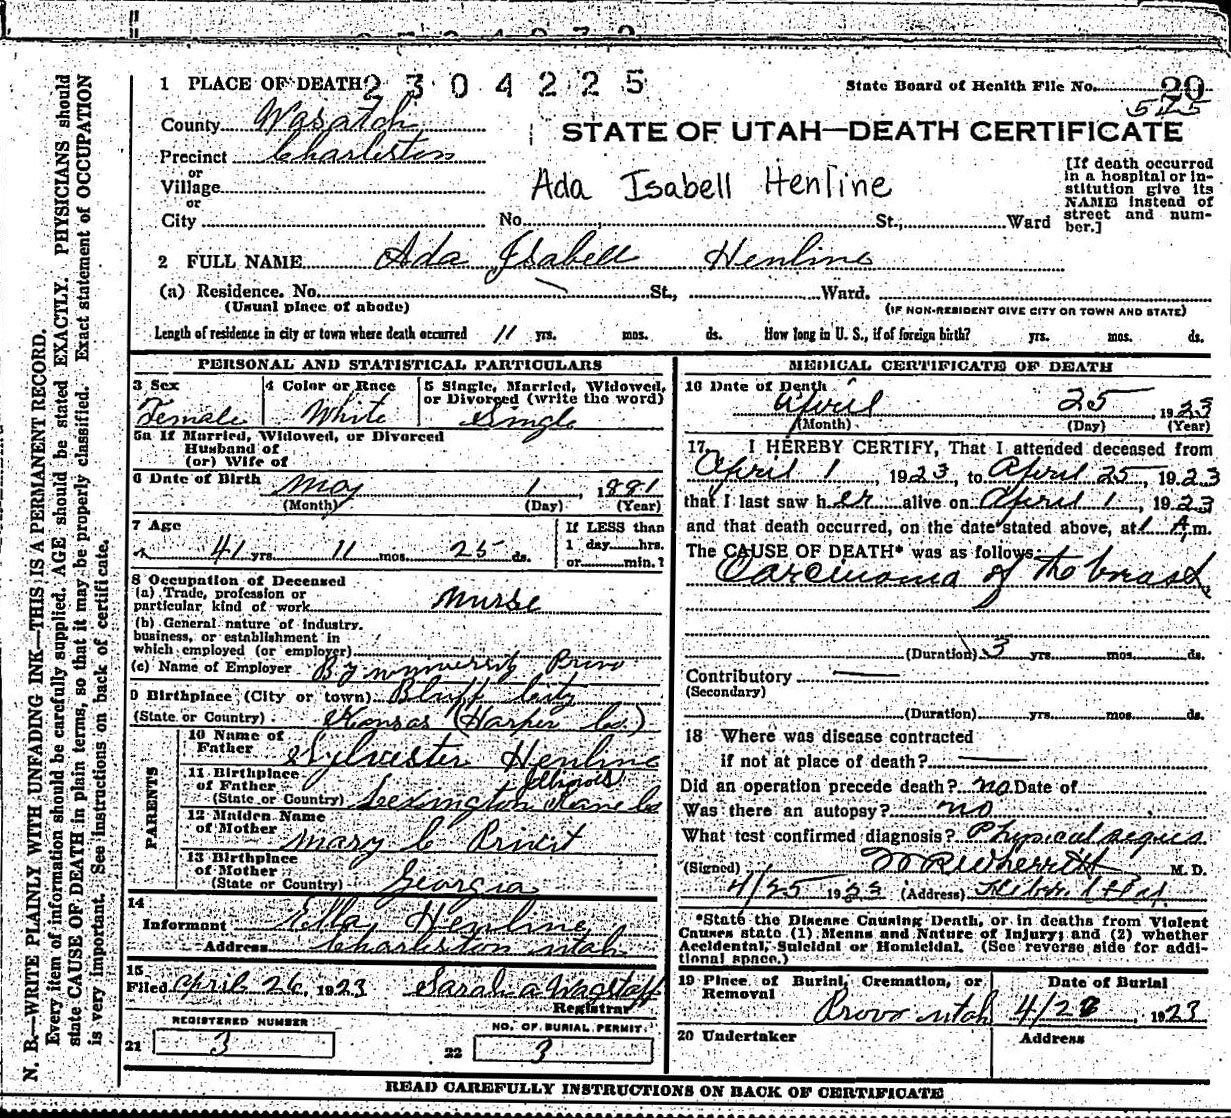 1 PLACE OF DEATH 2304225
State Board of Health File No. 20
525
County Wasatch
STATE OF UTAH—DEATH CERTIFICATE
Precinct Charleston
or
Village
or
City
Ada Isabell Henline
No. St., Ward
[If death occurred
in a hospital or in-
stitution give its
NAME instead of
street and num-
ber.]
2 FULL NAME Ada Isabell Henline
(a) Residence. No. St., Ward.
(Usual place of abode)
(IF NON-RESIDENT GIVE CITY OR TOWN AND STATE)
Length of residence in city or town where death occurred 11 yrs. mos. ds. How long in U. S., if of foreign birth? yrs. mos. ds.
PERSONAL AND STATISTICAL PARTICULARS
3 Sex
Female
4 Color or Race
White
5 Single, Married, Widowed,
or Divorced (write the word)
Single
5a If Married, Widowed, or Divorced
Husband of
(or) Wife of
6 Date of Birth May 1, 1881
(Month) (Day) (Year)
7 Age
41 yrs. 11 mos. 25 ds.
If LESS than
1 day hrs.
or min.?
8 Occupation of Deceased
(a) Trade, profession or
particular kind of work nurse
(b) General nature of industry,
business, or establishment in
which employed (or employer)
(c) Name of Employer B.Y. University Provo
9 Birthplace (City or town) Bluff City
(State or Country) Kansas (Harper Co.)
PARENTS
10 Name of
Father Sylvester Henline
11 Birthplace
of Father
(State or Country) Lexington Kane Co Illinois
12 Maiden Name
of Mother Mary C
13 Birthplace
of Mother
(State or Country) Georgia
14
Informant Ella Henline
Address Charleston Utah
15
Filed April 26, 1923 Sarah A Wagstaff
Registrar
REGISTERED NUMBER
21 3
NO. OF BURIAL PERMIT
22 3
MEDICAL CERTIFICATE OF DEATH
16 Date of Death
April 25, 1923
(Month) (Day) (Year)
17. I HEREBY CERTIFY, That I attended deceased from
April 1, 1923, to April 25, 1923
that I last saw her alive on April 1, 1923
and that death occurred, on the date stated above, at 1 A.m.
The CAUSE OF DEATH* was as follows:
Carcinoma of the breast
(Duration) 3 yrs. mos. ds.
Contributory
(Secondary)
(Duration) yrs. mos. ds.
18 Where was disease contracted
if not at place of death?
Did an operation precede death? no Date of
Was there an autopsy? no
What test confirmed diagnosis? Physical signs
(Signed) M. D.
4/25 1923 (Address)
*State the Disease Causing Death, or in deaths from Violent
Causes state (1) Means and Nature of Injury; and (2) whether
Accidental, Suicidal or Homicidal. (See reverse side for addi-
tional space.)
19 Place of Burial, Cremation, or
Removal
Provo Utah
Date of Burial
4/28, 1923
20 Undertaker
Address
READ CAREFULLY INSTRUCTIONS ON BACK OF CERTIFICATE
N. B.—WRITE PLAINLY WITH UNFADING INK—THIS IS A PERMANENT RECORD.
Every item of information should be carefully supplied. AGE should be stated EXACTLY. PHYSICIANS should
state CAUSE OF DEATH in plain terms, so that it may be properly classified. Exact statement of OCCUPATION
is very important. See instructions on back of certificate.